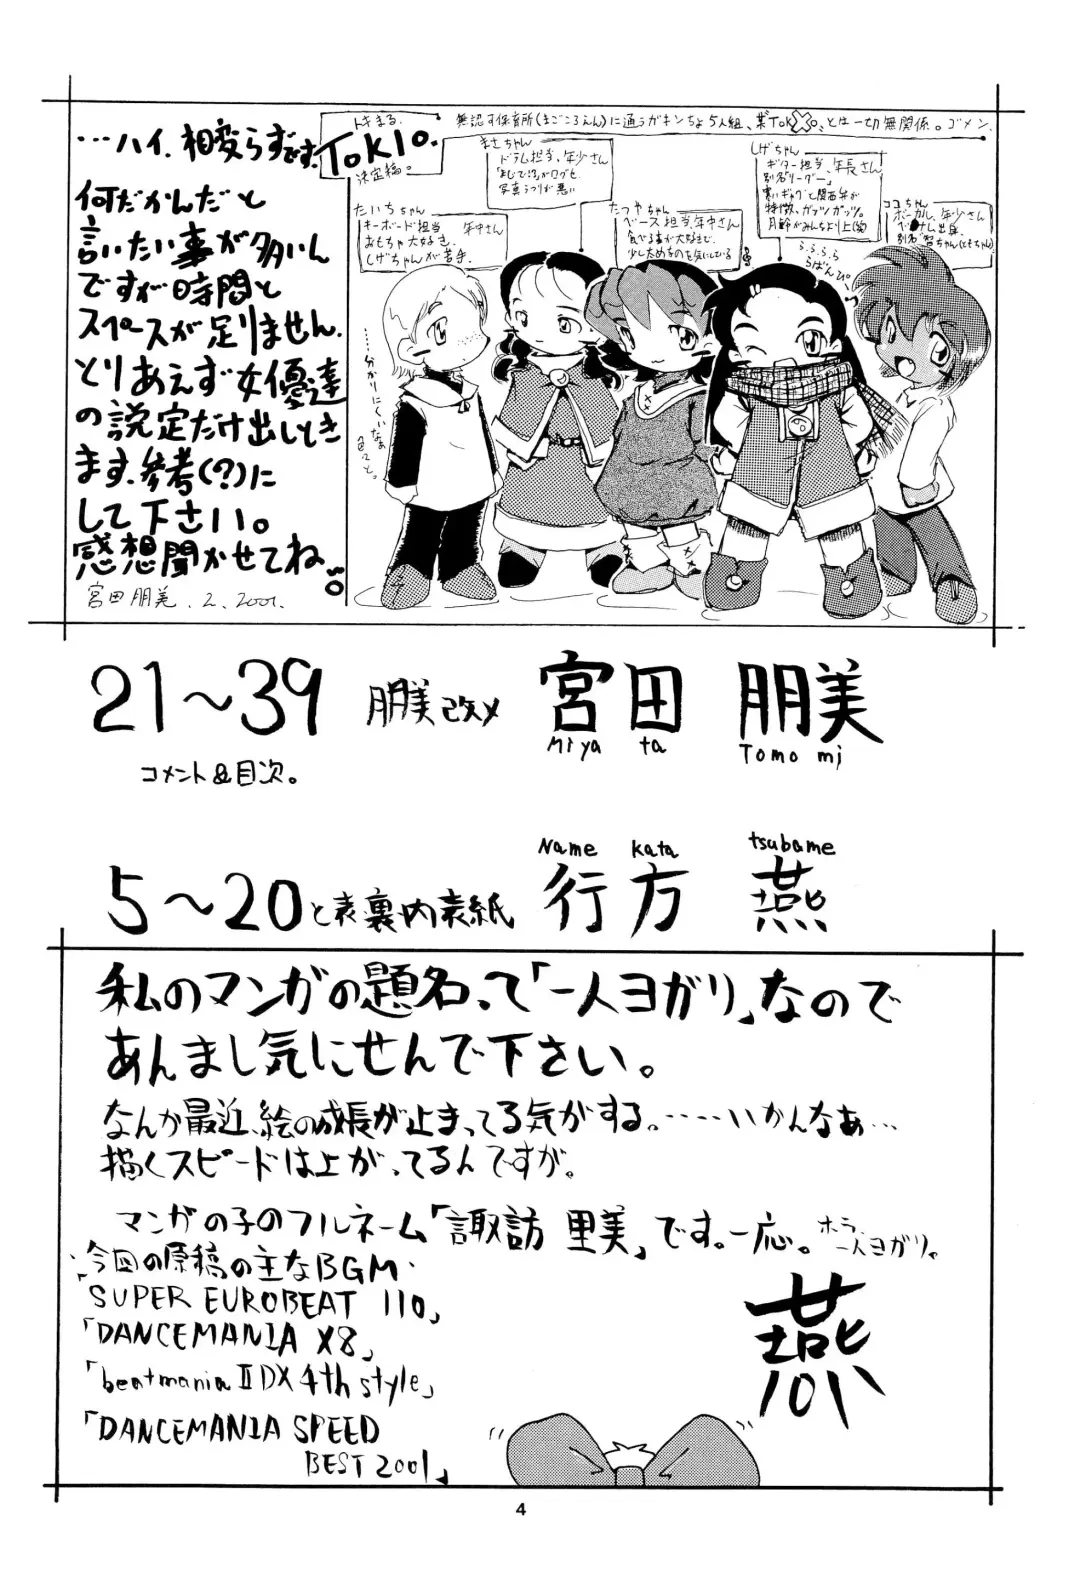 …ハイ、相変らずです。
何だかんだと
言いたい事が多いん
ですが時間と
スペースが足りません。
とりあえず女優達
の説定だけ出しとき
ます、参考(?)に
して下さい。
感想聞かせてね。
宮田朋美. 2. 2001.
トキまる。
TOKIO。
決定稿。
無認可保育所(まごころえん)に通うガキンちょ5人組、
とは一切無関係。ゴメン。
たいちちゃん
キーボード担当 年中さん
おもちゃ大好き。
しげちゃんが苦手。
まさちゃん
ドラム担当、年少さん
写真うつりが悪い
たつやちゃん
ベース担当、年中さん
食べる事が大好きで、
少したぬきのを気にしている
しげちゃん
ギター担当、年長さん
別名「リーダー」
寒いギャグと関西弁が
特徴、ガッツガッツ。
月齢がみんなより上(笑)
ココちゃん
ボーカル、年少さん
ベトナム出身。
ららららら
らぱんぴ。
……分かりにくいなぁ
21〜39 朋美改メ 宮田 朋美
Miya ta Tomo mi
コメント&目次。
Name kata tsubame
5〜20と表裏内表紙 行方 燕
私のマンガの題名って「一人ヨガリ」なので
あんまし気にせんで下さい。
なんか最近、絵の成長が止まってる気がする。……いかんなぁ…
描くスピードは上がってるんですが。
マンガの子のフルネーム「諏訪 里美」です。一応。
ホラ、
一人ヨガリ。
今回の原稿の主なBGM.
「SUPER EUROBEAT 110」
「DANCEMANIA X8」
「beatmania II DX 4th style」
「DANCEMANIA SPEED
BEST 2001」
燕
4